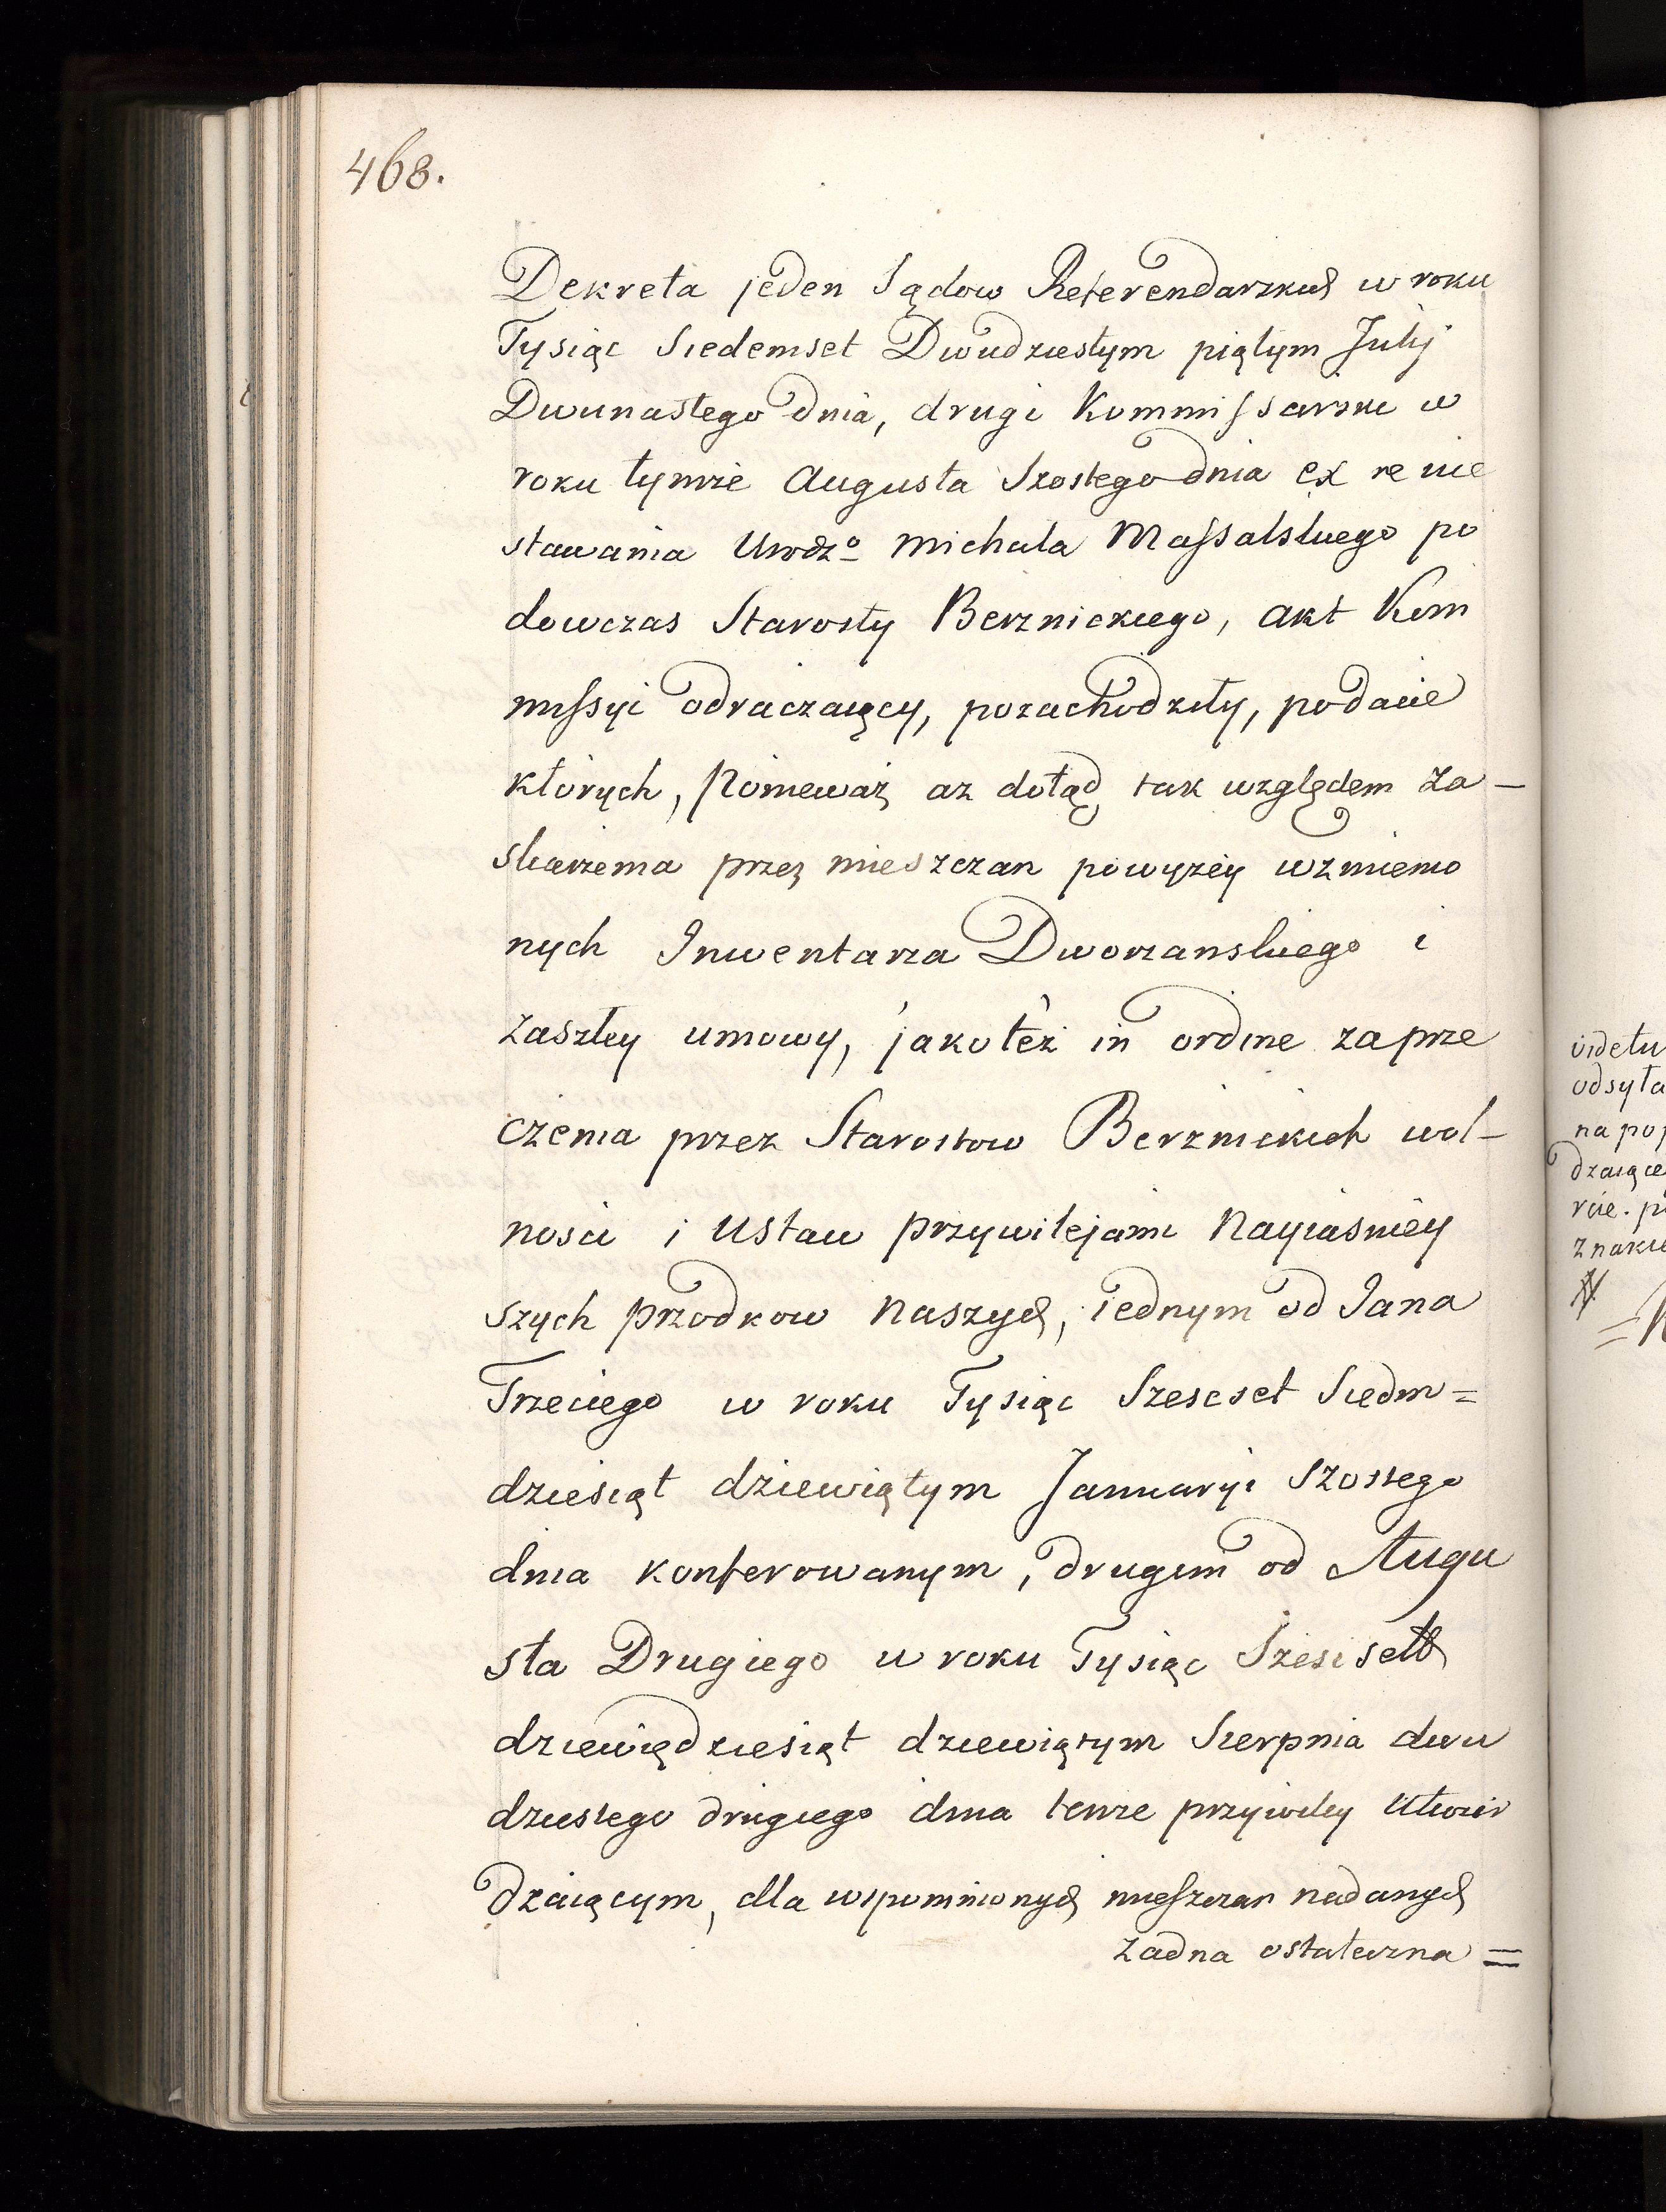 468.
Dekreta jeden Sądow Referendarskich w roku
Tysiąc Siedemset Dwudziestym piątym Julij
Dwunastego dnia, drugi Kommissarski w
roku tymże Augusta Szostego dnia ex re nie
stawania Urodzo Michala Massalskiego po
dowczas Starosty Berznickiego, akt Kom
missyi odraczaiący, pozachodziły, po dacie
których, Ponieważ aż dotąd, tak względem Za-
skarżenia przez mieszczan powyżey wzmienio
nych Inwentarza Dworzanskiego i
zaszłey umowy, jako też in ordine zaprze
czenia przez Starostow Berznickich wol-
nosci i Ustaw przywilejami Nayiasniéy
szych przodkow Naszych, iednym od Jana
Trzeciego w roku Tysiąc Szescset Siedm=
dziesiąt dziewiątym Januaryi Szostego
dnia konferowanym, drugim od Augu
sta Drugiego w roku Tysiąc Szescset
dziewiędziesiąt dziewiątym Sierpnia dwu
dziestego drugiego dnia tenże przywiley Utwier
dzaiącym, dla wspomnionych mieszczan nadanych
żadna ostateczna =
videtu
odsyła
na pop
dzaiące
rcie. p
znakie